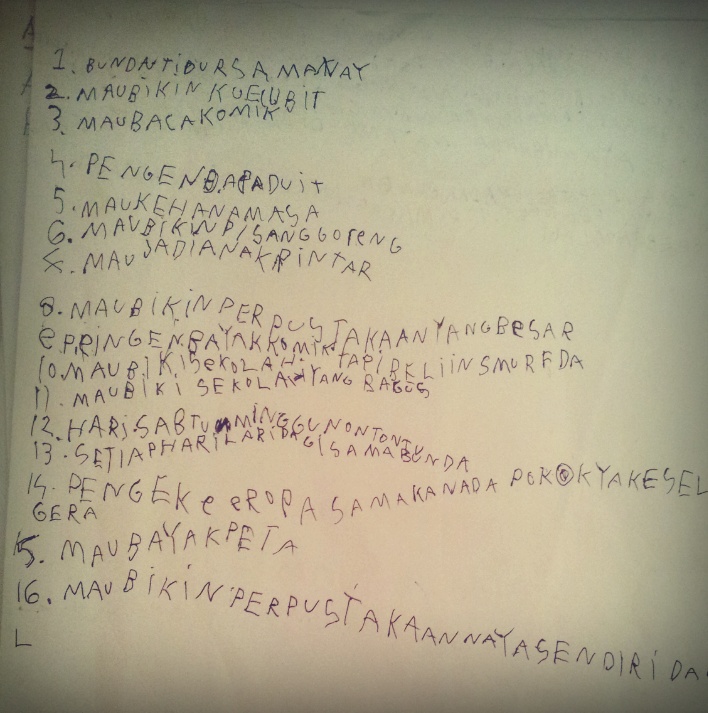 1. BUNDA TIDUR SAMA NAY
2. MAU BIKIN KUE CUBIT
3. MAU BACA KOMIK
4. PENGEN DAPA DUIT
5. MAU KEHANAMASA
6. MAU BIKIN PISANG GORENG
7. MAU JADI ANAK PINTAR
8. MAU BIKIN PERPUSTAKAAN YANG BESAR
PENGEN BAYAK KOMIK TAPI BELIIN SMURF DA
10. MAU BIKI SEKOLAH
11. MAU BIKI SEKOLAH YANG BAGUS
12. HARI SABTU MINGGU NONTON TV
13. SETIAP HARI LARI PAGI SAMA BUNDA
14. PENGE KE EROPA SAMA KANADA POKOKYA KE SEL
GERA
15. MAU BAYAK PETA
16. MAU BIKIN PERPUSTAKAAN NAYA SENDIRI DA
L